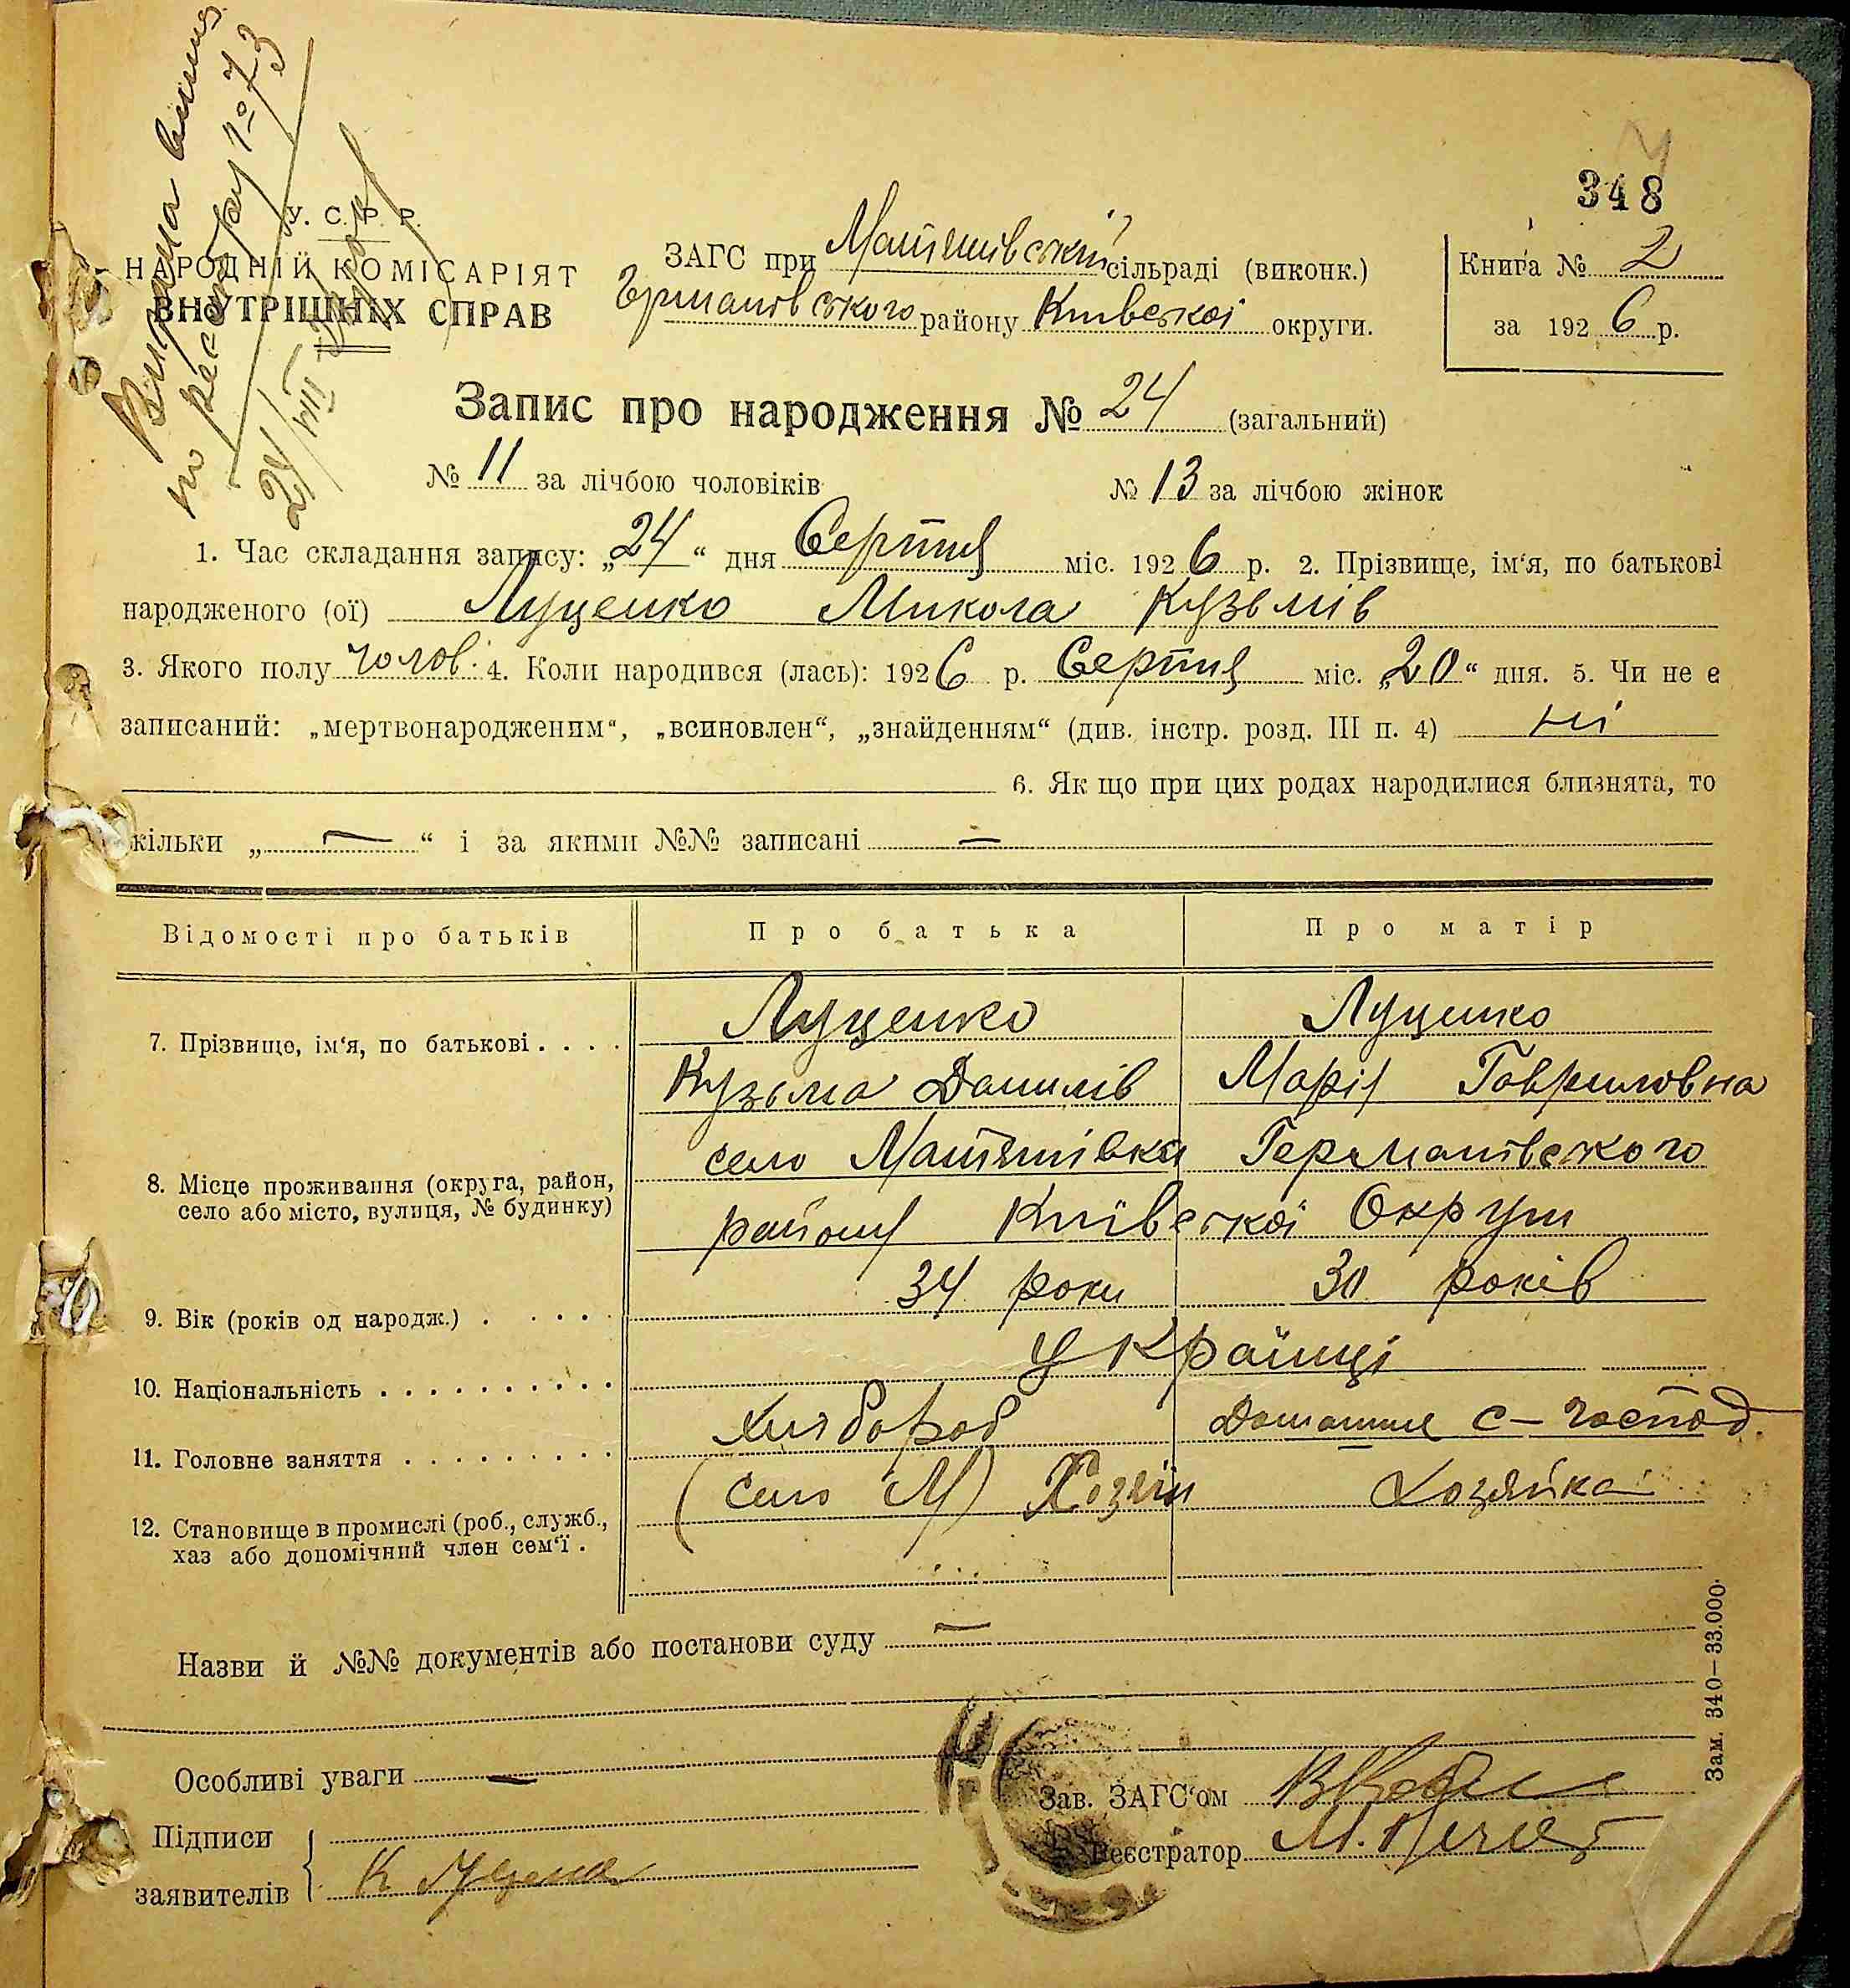 Видана випис
по реєстру № 73
24/VIII
348
У. С. Р. Р.
НАРОДНІЙ КОМІСАРІЯТ
ВНУТРІШНІХ СПРАВ
ЗАГС при Матяшівській сільраді (виконк.)
Германівського району Київської округи.
Книга № 2
за 1926 р.
Запис про народження № 24 (загальний)
№ 11 за лічбою чоловіків № 13 за лічбою жінок
1. Час складання запису: „24“ дня Серпня міс. 1926 р. 2. Прізвище, ім‘я, по батькові
народженого (ої) Луценко Микола Кузьмів
3. Якого полу чолов. 4. Коли народився (лась): 1926 р. Серпня міс. „20“ дня. 5. Чи не є
записаний: „мертвонародженим“, „всиновлен“, „знайденням“ (див. інстр. розд. III п. 4) ні
6. Як що при цих родах народилися близнята, то
кільки „—“ і за якими №№ записані —
Відомості про батьків Про батька Про матір
7. Прізвище, ім‘я, по батькові . . . . Луценко Луценко
Кузьма Данилів Марія Гавриловна
8. Місце проживання (округа, район, село або місто, вулиця, № будинку) село Матяшівка Германівського
району Київської Округи
9. Вік (років од народж.) . . . . . 34 роки 30 років
10. Національність . . . . . . . . . . Українці
11. Головне заняття . . . . . . . . . Хлібороб Домашнє с–господ.
12. Становище в промислі (роб., служб., хаз або допомічний член сем‘ї . (село М) Хозяїн Хозяйка
Назви й №№ документів або постанови суду —
Особливі уваги —
Зав. ЗАГС‘ом
Підписи
заявителів К Луценко
Реєстратор М.
Зам. 340–33.000.